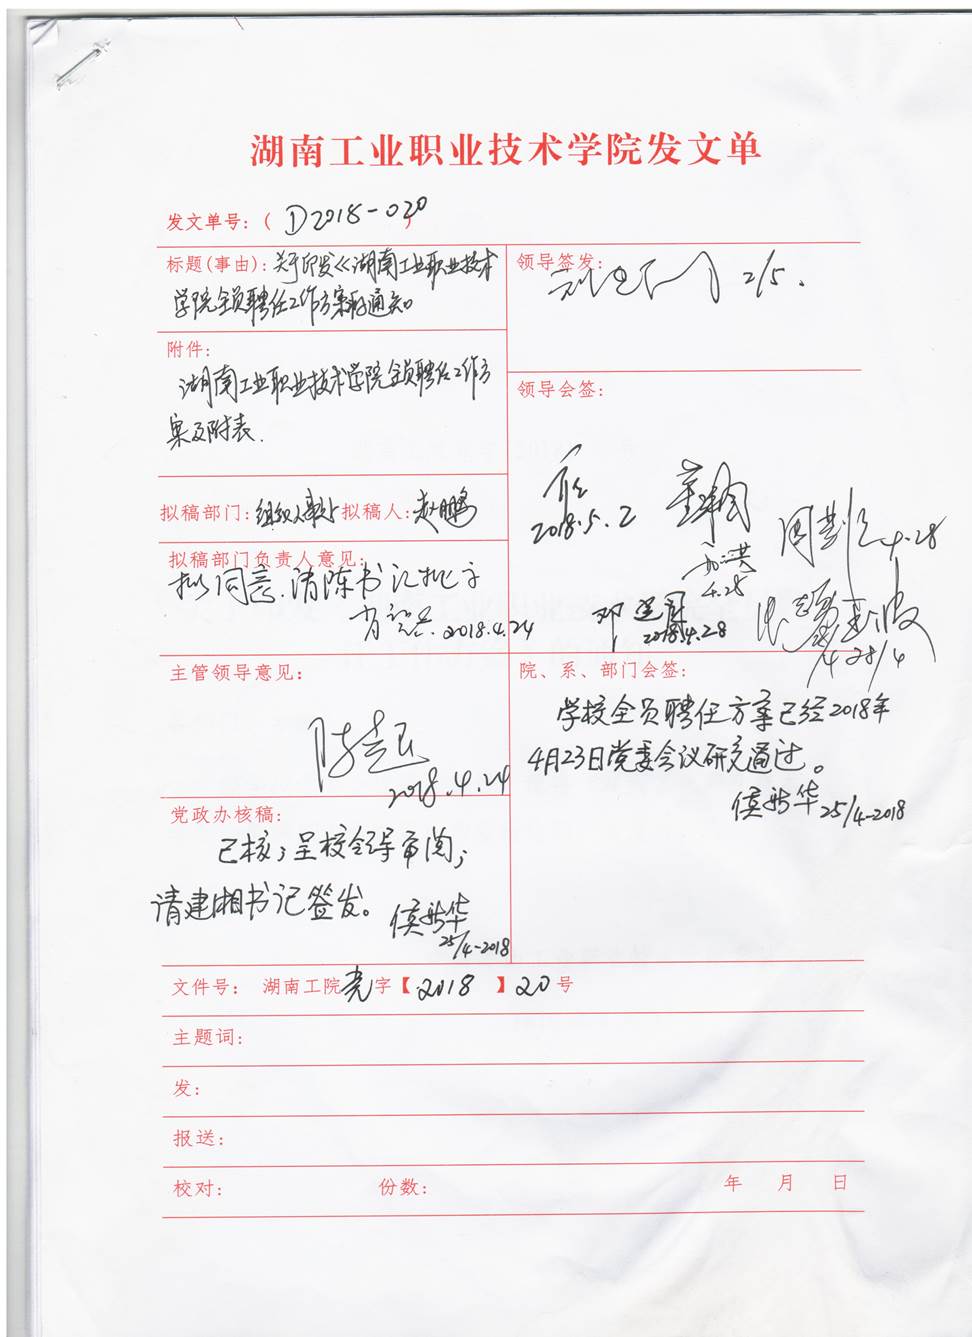 湖南工业职业技术学院发文单
发文单号：（ D2018-020 ）
标题（事由）：关于印发《湖南工业职业技术
学院全员聘任工作方案》的通知
领导签发：
2/5.
附件：
湖南工业职业技术学院全员聘任工作方
案及附表.
领导会签：
2018.5.2
4.28
4.28
邓
2018.4.28
4.28/4
拟稿部门：组织人事部 拟稿人：赵鹏
拟稿部门负责人意见：
拟同意.请陈书记批示
2018.4.24
主管领导意见：
2018.4.24
院、系、部门会签：
学校全员聘任方案已经2018年
4月23日党委会议研究通过。
侯新华 25/4-2018
党政办核稿：
已核；呈校领导审阅；
请建湘书记签发。 侯新华
25/4-2018
文件号： 湖南工院党字【2018】20号
主题词：
发：
报送：
校对： 份数： 年 月 日